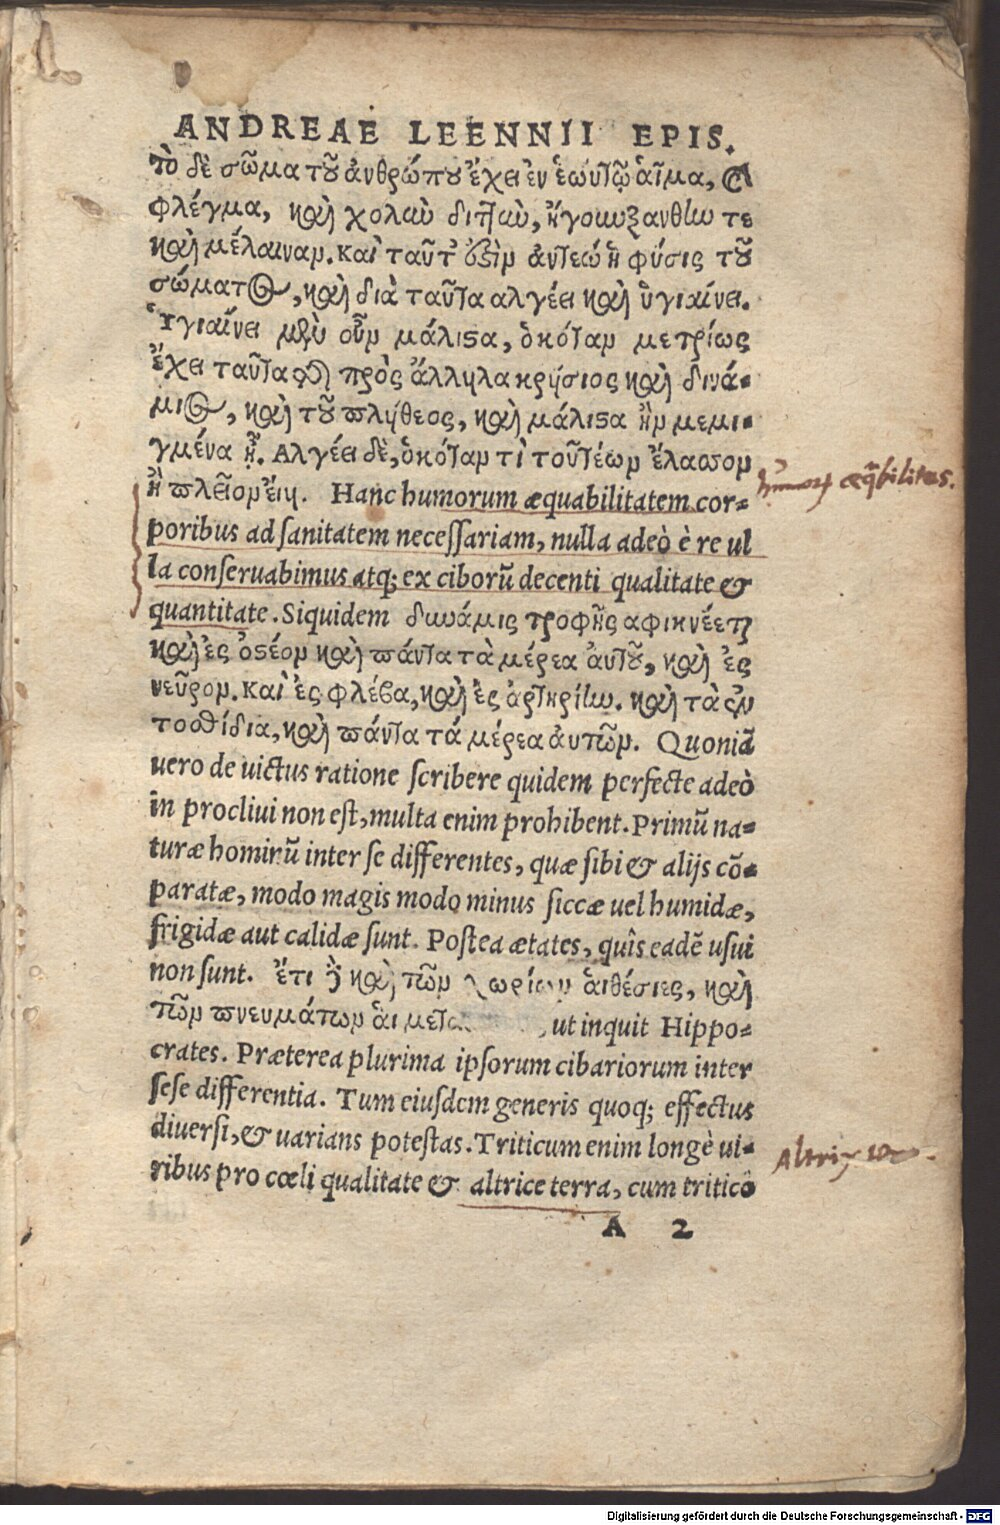 ANDREAE LEENNII EPIS.
τὸ δὲ σῶμα τοῦ ἀνθρώπου ἔχει ἐν ἑωυτῷ αἷμα, καὶ
φλέγμα, καὶ χολὴν διττὴν, ἤγουν ξανθήν τε
καὶ μέλαιναν. καὶ ταῦτ' ἐστὶν αὐτέῳ ἡ φύσις τοῦ
σώματος, καὶ διὰ ταῦτα αλγέει καὶ ὑγιαίνει.
Ὑγιαίνει μὲν οὖν μάλιστα, ὁκόταν μετρίως
ἔχει ταῦτα τῆς πρὸς ἄλληλα κρήσιος καὶ δυνά-
μιος, καὶ τοῦ πλήθεος, καὶ μάλιστα ἢν μεμι-
γμένα ᾖ. Αλγέει δὲ, ὁκόταν τὶ τουτέων ἔλασσον
ἢ πλεῖον εἴη. Hanc humorum æquabilitatem cor-
poribus ad sanitatem necessariam, nulla adeò è re ul
la conseruabimus atq; ex ciborũ decenti qualitate &
quantitate. Siquidem δυνάμις τροφῆς αφικνέεται
καὶ ἐς ὀστέον καὶ πάντα τὰ μέρεα αὐτοῦ, καὶ ἐς
νεῦρον. καὶ ἐς φλέβα, καὶ ἐς ἀρτηρίην. καὶ τὰ ἐν
τοσθίδια, καὶ πάντα τά μέρεα αυτῶν. Quoniã
uero de uictus ratione scribere quidem perfecte adeò
in procliui non est, multa enim prohibent. Primũ na-
turæ hominũ inter se differentes, quæ sibi & alijs cõ-
paratæ, modo magis modo minus siccæ uel humidæ,
frigidæ aut calidæ sunt. Postea ætates, quîs eadẽ usui
non sunt. ἔτι δὲ καὶ τῶν χωρίων ἁι θέσιες, καὶ
τῶν πνευμάτων ἁι μετα ut inquit Hippo-
crates. Præterea plurima ipsorum cibariorum inter
sese differentia. Tum eiusdem generis quoq; effectus
diuersi, & uarians potestas. Triticum enim longè ui-
ribus pro cœli qualitate & altrice terra, cum tritico
A 2
æqbilitas.
Altrix
Digitalisierung gefördert durch die Deutsche Forschungsgemeinschaft - DFG